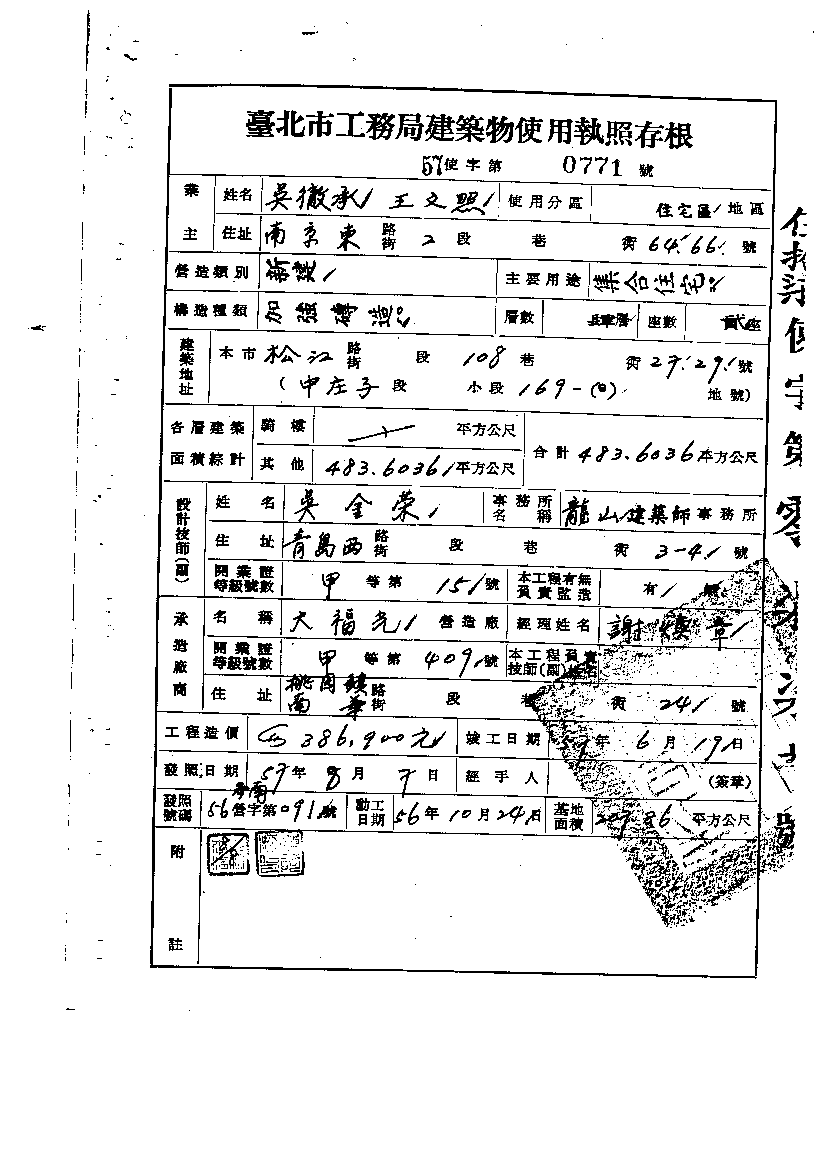 臺北市工務局建築物使用執照存根
57使字第 0771 號
業主 姓名 吳徹承 王文照 使用分區 住宅區 地區
住址 南京東 路街 2 段 巷 街 64.66. 號
營造類別 新建 主要用途 集合住宅
構造種類 加強磚造 層數 座數 貳座
建築地址 本市 松江 路街 段 108 巷 街 27.29. 號
(中庄子段 小段 169-( ) 地號)
各層建築面積綜計 騎樓 平方公尺 合計 483.6036 平方公尺
其他 483.6036 平方公尺
設計技師(副) 姓名 吳金榮 事務所名稱 龍山建築師事務所
住址 青島西 路街 段 巷 街 3-4 號
開業證等級號數 甲 等第 151 號 本工程有無負責監造 有 無
承造廠商 名稱 大福光 營造廠 經理姓名 謝 章
開業證等級號數 甲 等第 409 號 本工程負責技師(副)姓名
住址 桃園鎮南華 路街 段 巷 街 24 號
工程造價 386,900元 竣工日期 57年 6月 19日
發照日期 57年 8月 7日 經手人 (簽章)
發照號碼 56營字第091號 動工日期 56年10月24日 基地面積 207.86 平方公尺
附註